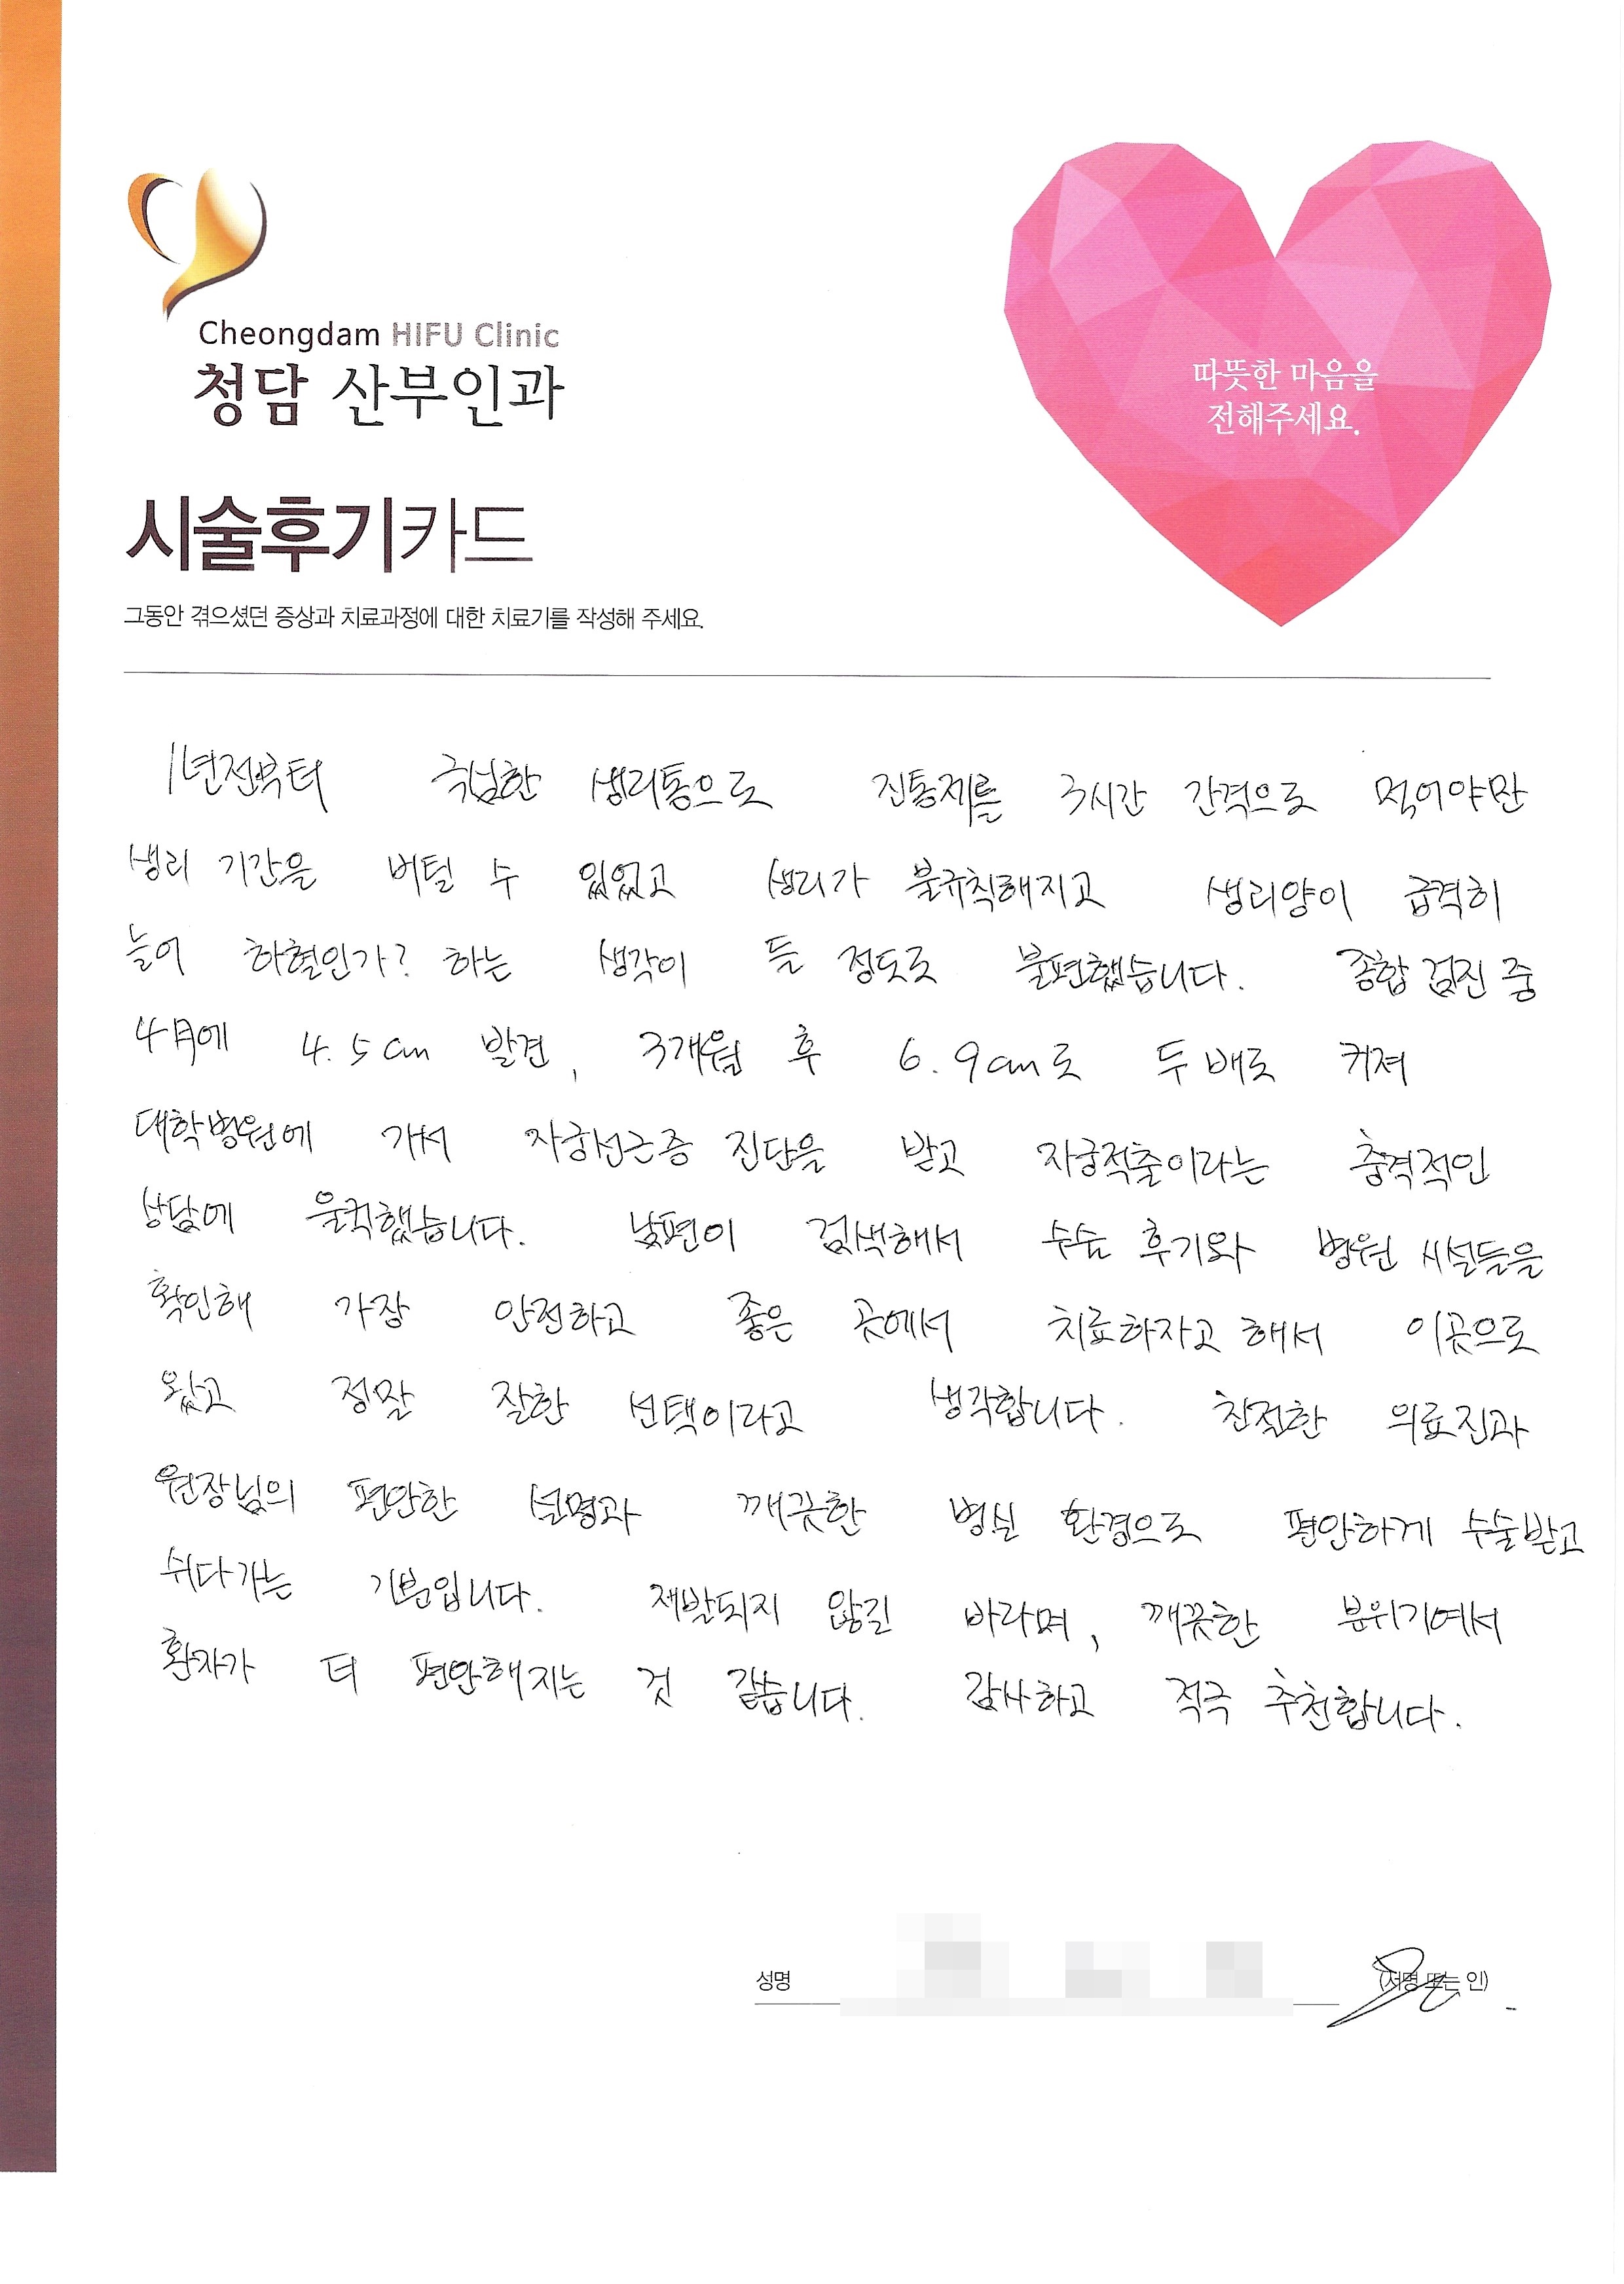 Cheongdam HIFU Clinic
청담 산부인과
따뜻한 마음을
전해주세요.
시술후기카드
그동안 겪으셨던 증상과 치료과정에 대한 치료기를 작성해 주세요.
1년전부터 극심한 생리통으로 진통제를 3시간 간격으로 먹어야만
생리 기간을 버틸 수 있었고 생리가 불규칙해지고 생리양이 급격히
늘어 하혈인가? 하는 생각이 들 정도로 불편했습니다. 종합 검진 중
4月에 4.5cm 발견, 3개월 후 6.9cm로 두 배로 커져
대학병원에 가서 자궁선근증 진단을 받고 자궁적출이라는 충격적인
상담에 울컥했습니다. 남편이 검색해서 수술 후기와 병원 시설들을
확인해 가장 안전하고 좋은 곳에서 치료하자고 해서 이곳으로
왔고 정말 잘한 선택이라고 생각합니다. 친절한 의료진과
원장님의 편안한 설명과 깨끗한 병실 환경으로 편안하게 수술받고
쉬다가는 기분입니다. 재발되지 않길 바라며, 깨끗한 분위기에서
환자가 더 편안해지는 것 같습니다. 감사하고 적극 추천합니다.
성명 (서명 또는 인)